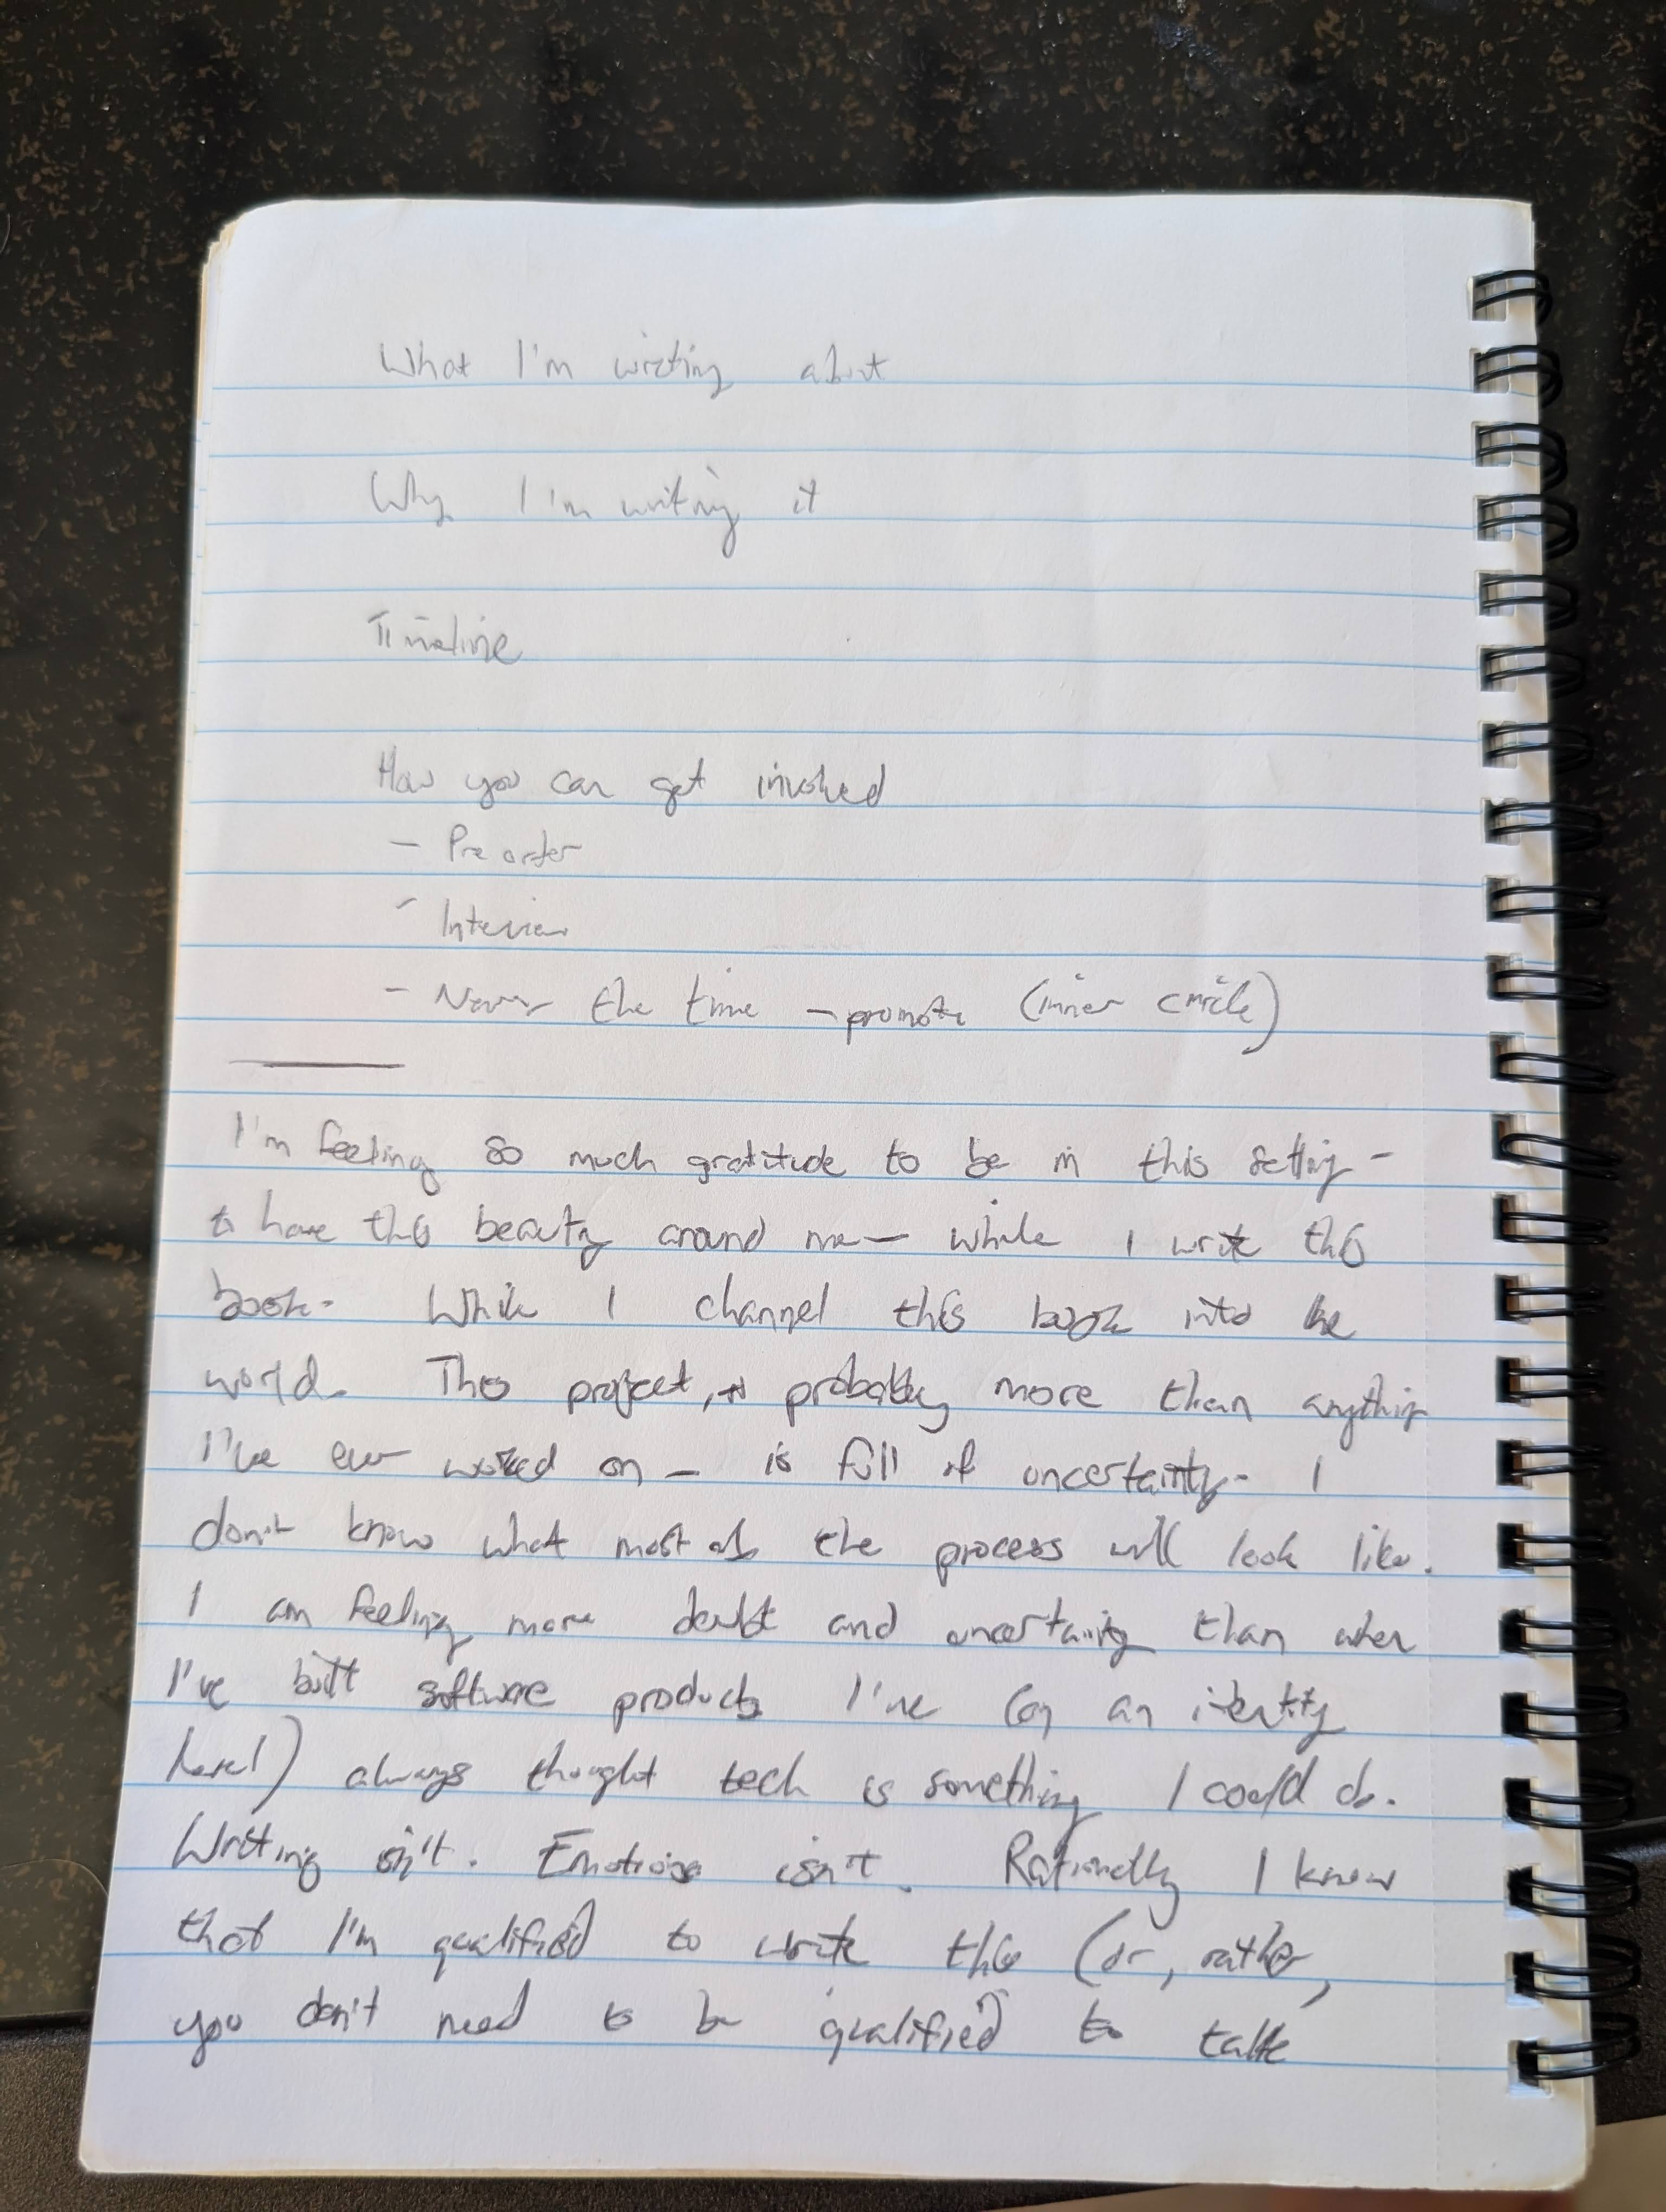 What I'm writing about
Why I'm writing it
Timeline
How you can get involved
- Pre order
- Interview
- the time - promote (inner circle)
I'm feeling so much gratitude to be in this setting -
to have this beauty around me - while I write this
book. While I channel this book into the
world. This project, probably more than anything
I've ever worked on - is full of uncertainty. I
don't know what most of the process will look like.
I am feeling more doubt and uncertainty than when
I've built software products I've (on an identity
level) always thought tech is something I could do.
Writing isn't. Emotions isn't. Rationally I know
that I'm qualified to write this (or, rather,
you don't need to be qualified to talk